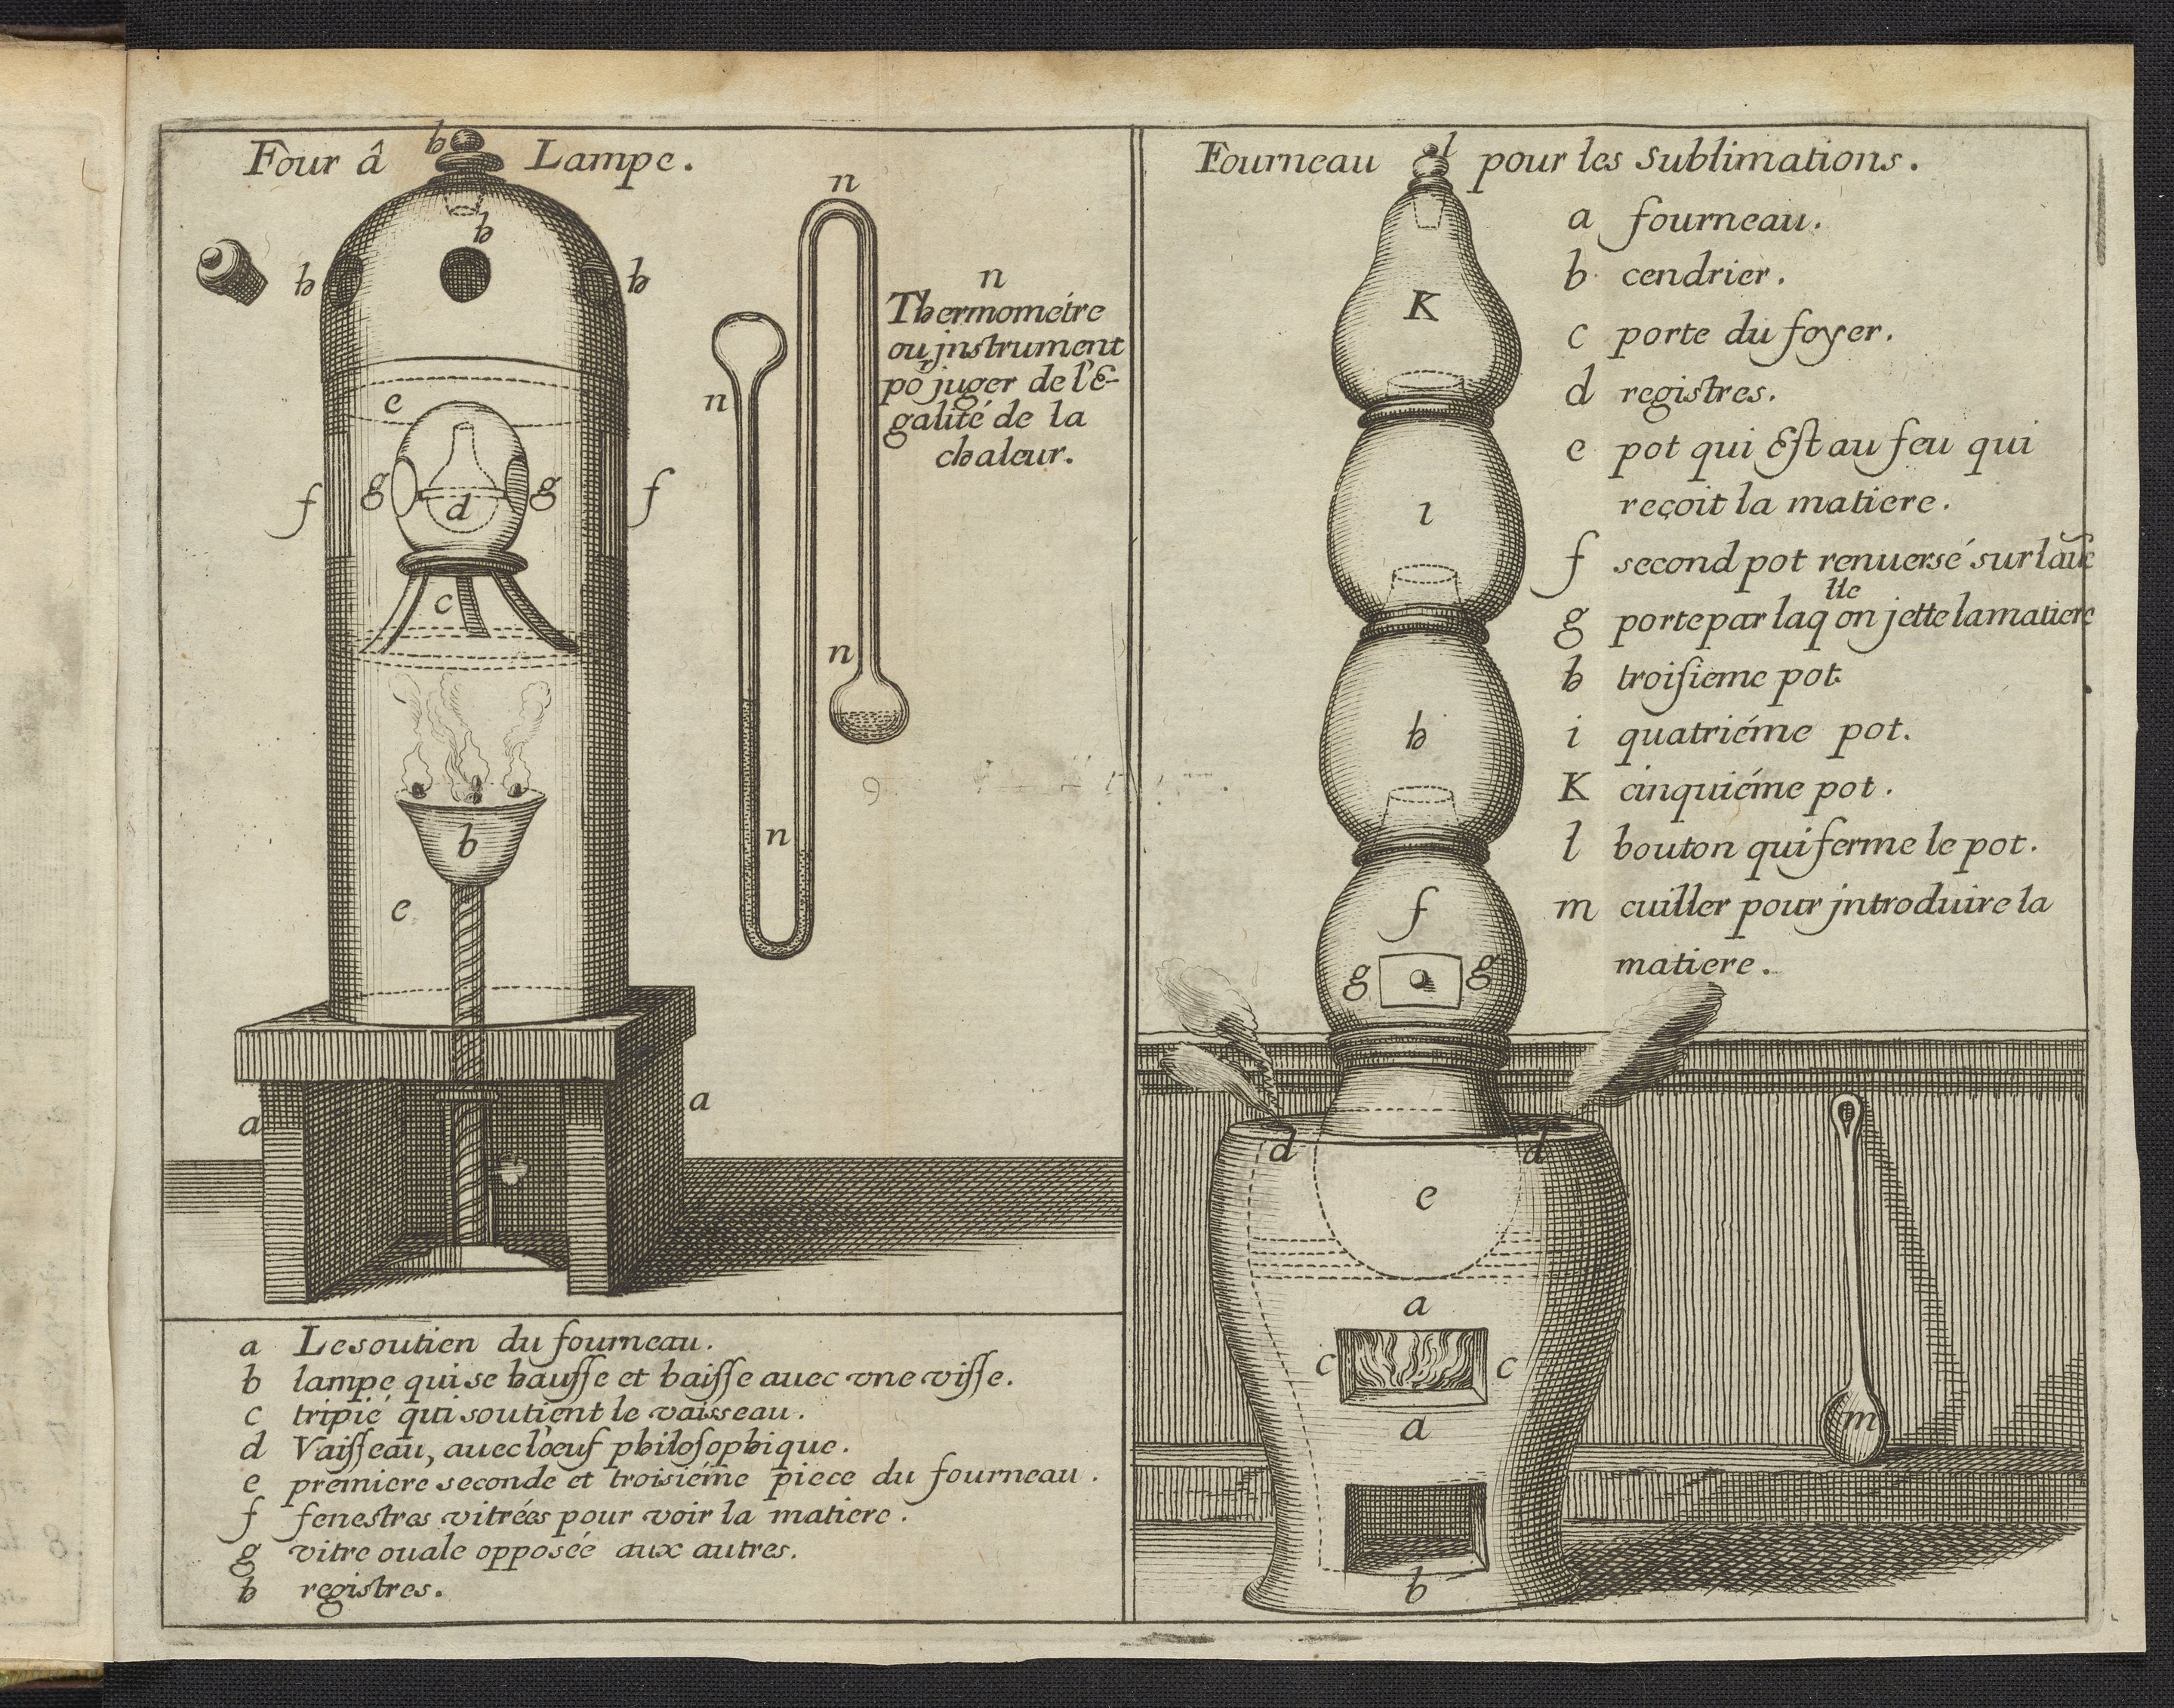 Four â Lampe.
h
h
h
h
n
n
Thermométre
ou jnstrument
po juger de l'E-
galité de la
chaleur.
e
n
f
g
d
g
f
c
n
b
n
e
a
a
a Le soutien du fourneau.
b lampe qui se hausse et baisse auec vne visse.
c tripié qui soutient le vaisseau.
d Vaisseau, auec l'œuf philosophique.
e premiere seconde et troisiéme piece du fourneau.
f fenestres vitrées pour voir la matiere.
g vitre ouale opposéé aux autres.
h registres.
Fourneau pour les sublimations.
l
a fourneau.
b cendrier.
c porte du foyer.
d registres.
e pot qui Est au feu qui
reçoit la matiere.
f second pot renuersé sur lau͂e
g porte par laq lle on jette la matiere
h troisieme pot.
i quatriéme pot.
K cinquiéme pot.
l bouton qui ferme le pot.
m cuiller pour jntroduire la
matiere.
K
i
h
f
g
g
d
d
e
a
c
c
a
m
b